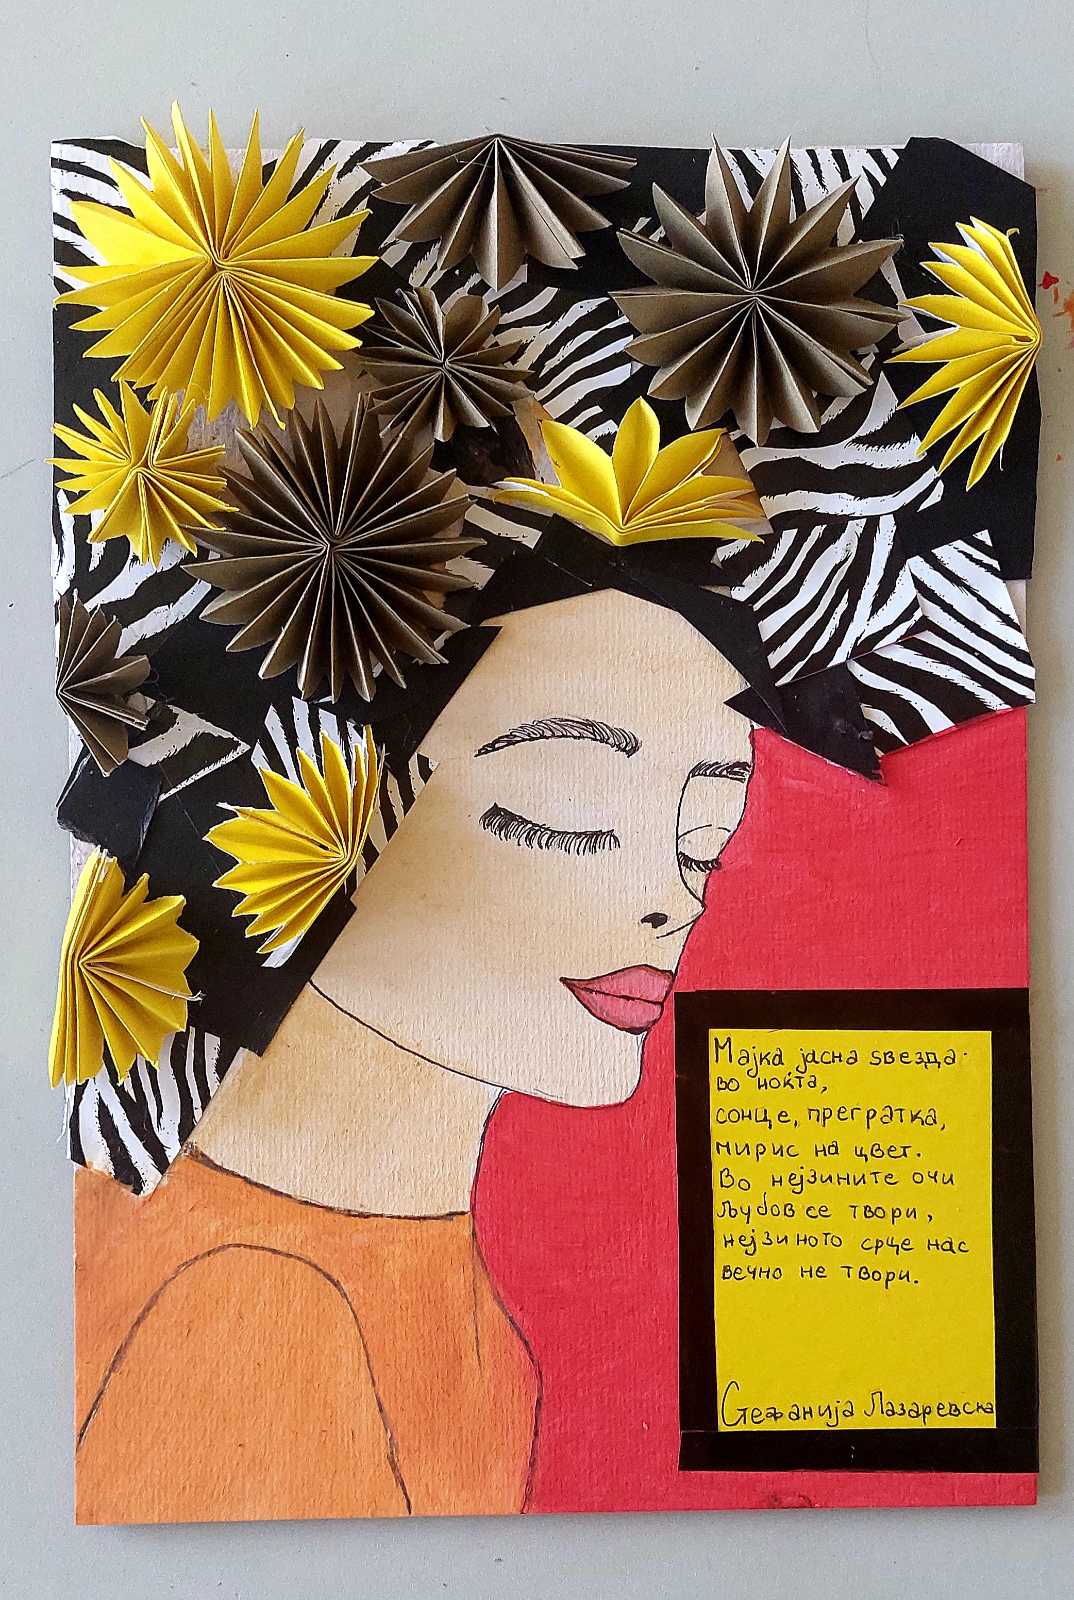 Мајка јасна ѕвезда
во ноќта,
сонце, прегратка,
мирис на цвет.
Во нејзините очи
љубов се твори,
нејзиното срце нас
вечно не твори.
Стефанија Лазаревска